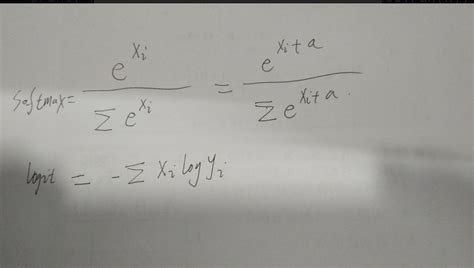 softmax = e^{x_i} / Σ e^{x_i} = e^{x_i+a} / Σ e^{x_i+a}.
logit = -Σ x_i log y_i